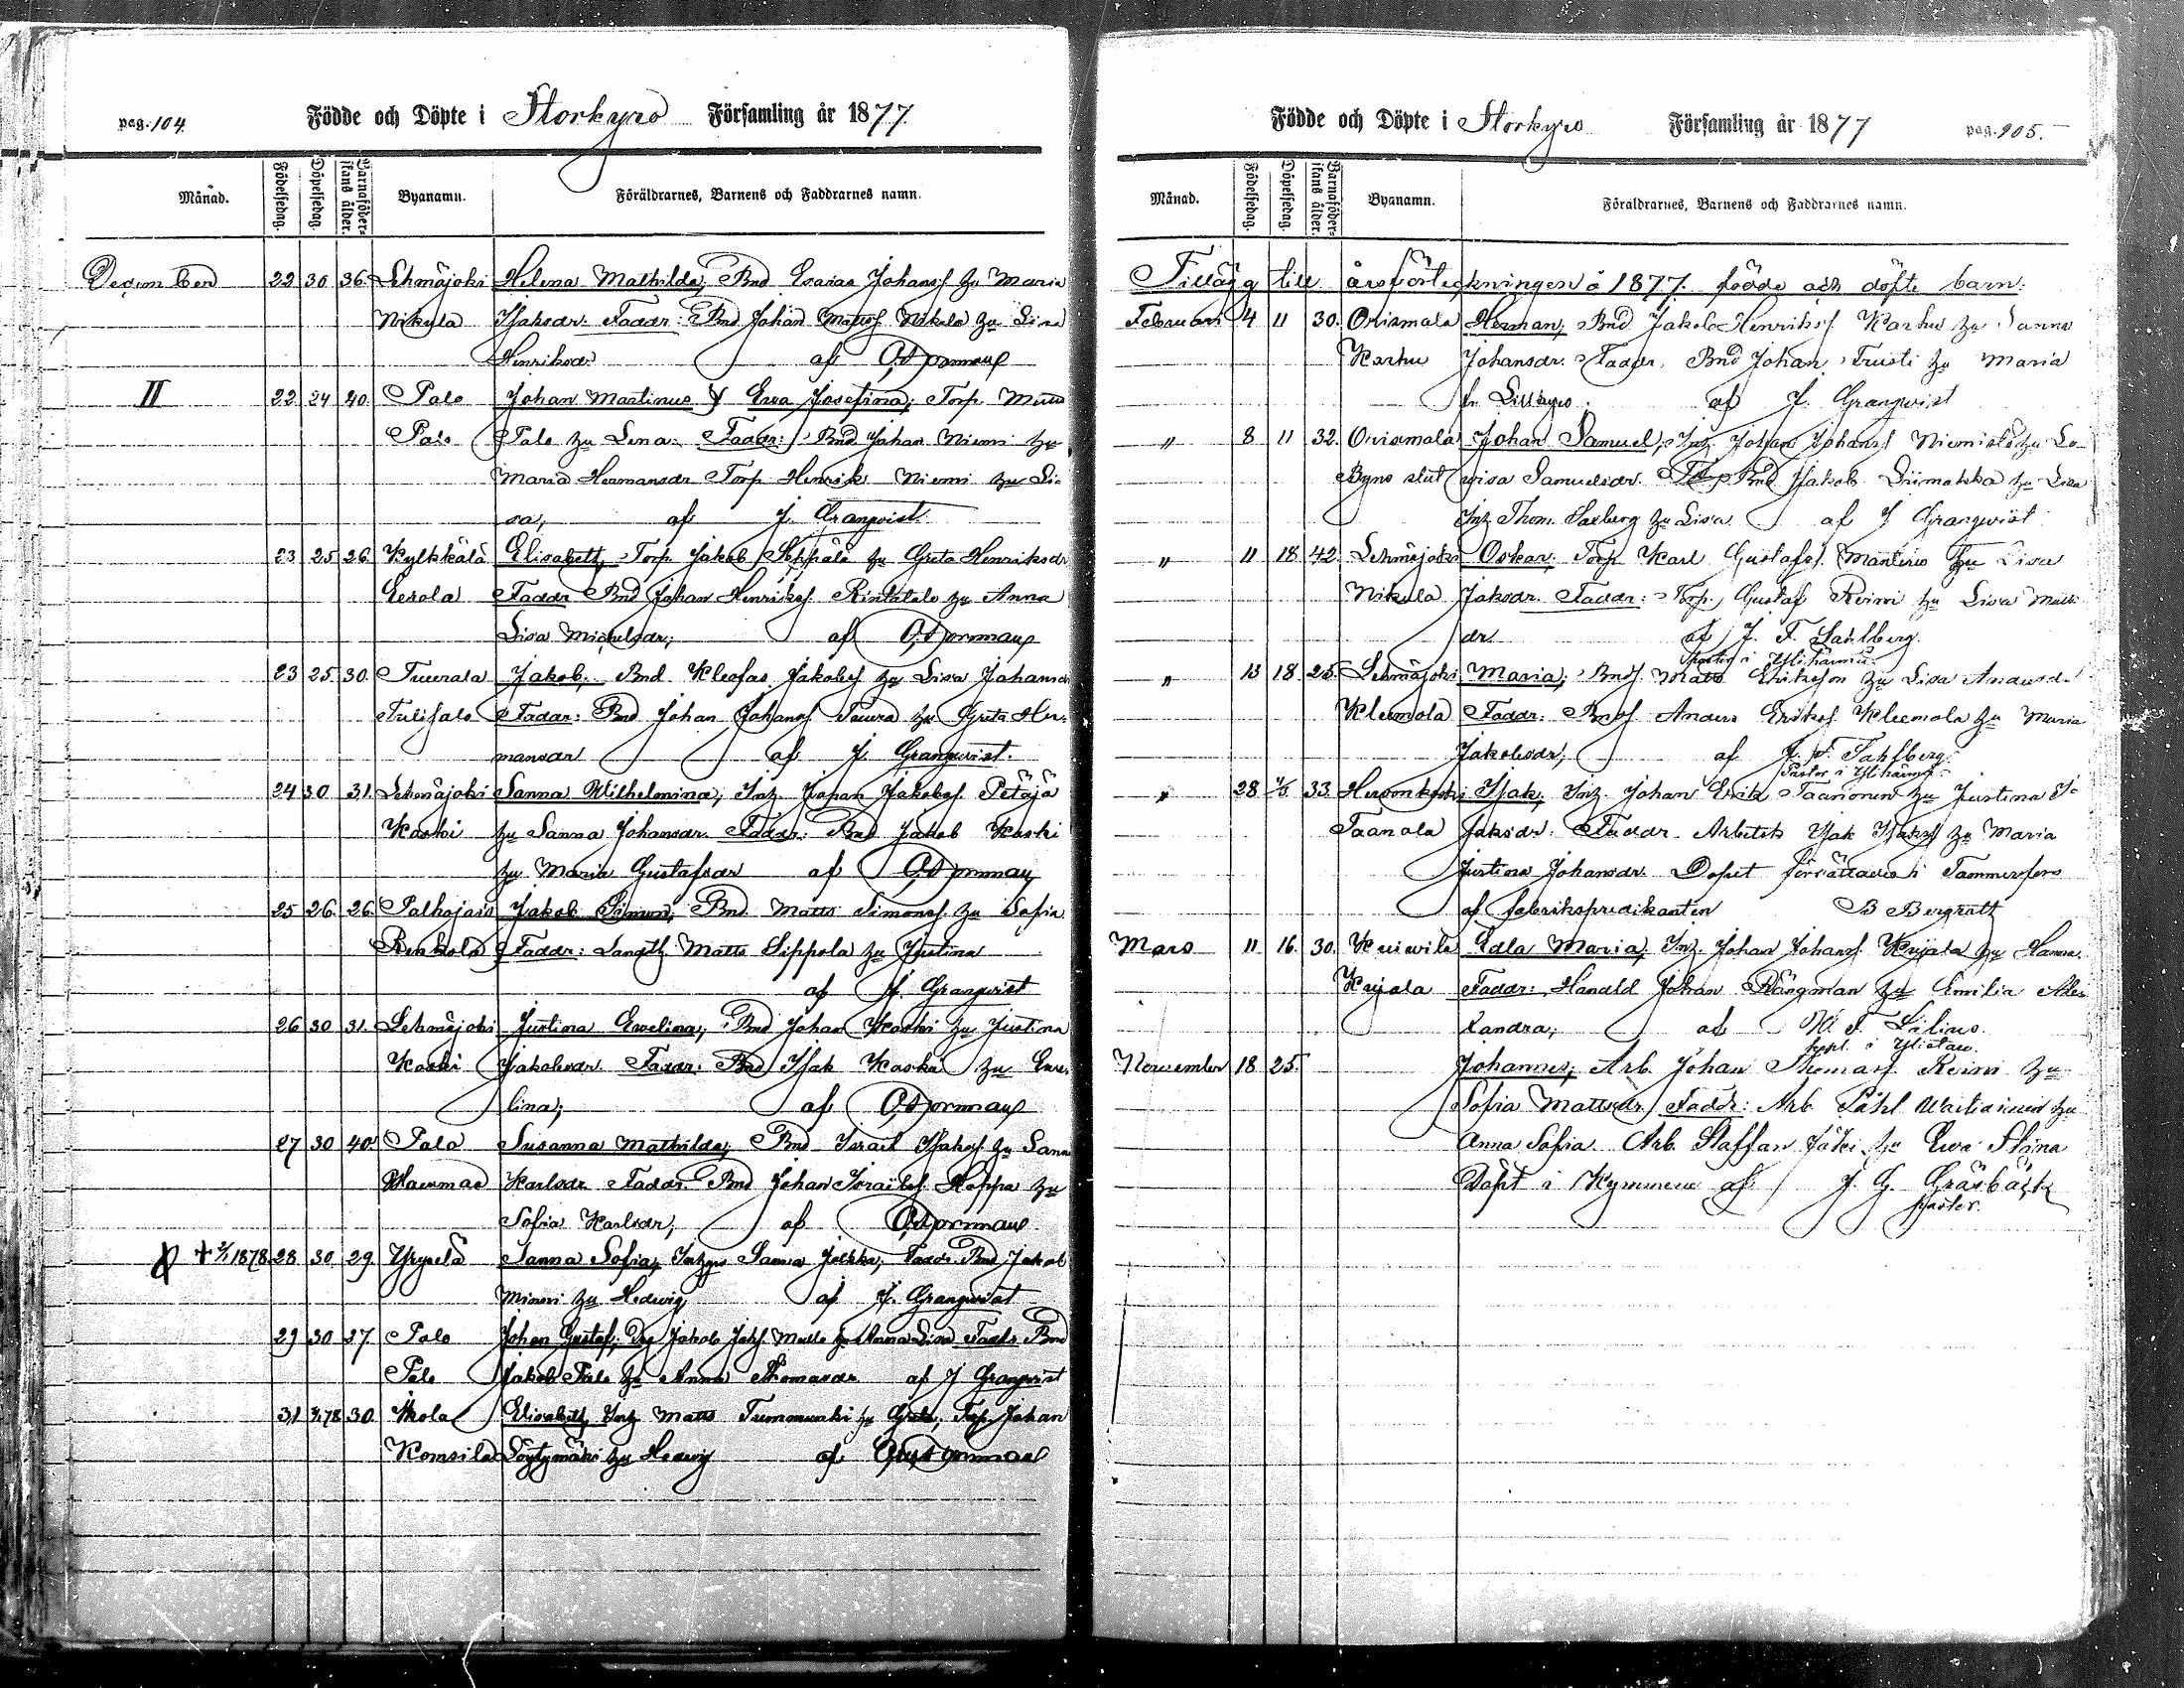 pag. 104.
Födde och Döpte i Storkyro Församling år 1877.
Månad. Födelsedag. Döpelsedag. Barnaföderskans ålder. Byanamn. Föräldrarnes, Barnens och Faddrarnes namn.
December 22 30 36. Lehmäjoki Helena Mathilda; Bnd Esaias Johanss. hu Maria
Nikula Isaksdr. Faddr: Bnd Johan Mattss Nikula hu Lisa
Henriksdr. af
II 22 24 40. Palo Johan Martinus & Ewa Josefina; Torp. Matts
Palo Palo hu Lena. Faddr: Bnd. Johan Niemi hu
Maria Hermansdr Torp Henrik Niemi hu Li-
sa, af J. Granqvist.
23 25 26. Kylkkälä Elisabeth, Torp. Jakob Seppälä hu Greta Henriksdr
Eerola Faddr Bnd Johan Henrikss. Rintatalo hu Anna
Lisa Michelsdr; af
23 25 30. Tuurala Jakob; Bnd Kleofas Jakobss hu Lisa Johansd
Tulisalo Faddr: Bnd Johan Johanss Tuura hu Greta Her-
mansdr af J. Granqvist.
24 30 31. Lehmäjoki Sanna Wilhelmina; Inh. Johan Jakobss. Petäjä
Kaski hu Sanna Johansdr. Faddr: Bnd Jakob Kaski
hu Maria Gustafsdr af
25 26. 26. Palhojais Jakob Simon; Bnd Matts Simonss. hu Sofia
Faddr: Matts Sippola hu Justina
af J. Granqvist
26 30 31. Lehmäjoki Justina Ewelina; Bnd Johan Kaski hu Justina
Kaski Jakobsdr. Faddr: Bnd Isak Kaski hu Ewe-
lina; af
27 30 40. Palo Susanna Mathilda; Bnd Israel Isakss hu Sann
Karlsdr Faddr. Bnd Johan Israelss. hu
Sofia Karlsdr; af
+ 2/1 1878 28 30. 29. Yrjylä Sanna Sofia; Sanna Faddr. Bnd Jakob
hu Hedwig af J. Granqvist
29 30 37. Palo Johan Gustaf; Jakob Matts hu Anna Lisa Faddr Bnd
Palo Jakob Palo hu Anna Thomasdr af J Granqvist
31 30. Ikola Elisabeth, Inh Matts hu Greta, Torp. Johan
Löytymäki hu Hedwig af
Födde och Döpte i Storkyro Församling år 1877 pag. 105.
Månad. Födelsedag. Döpelsedag. Barnaföderskans ålder. Byanamn. Föräldrarnes, Barnens och Faddrarnes namn.
Tillägg till årsförteckningen å 1877. födde och döpte barn.
Februari 4 11 30. Orismala Herman; Bnd. Jakob Henrikss. Karhu hu Sanna
Karhu Johansdr. Faddr. Bnd Johan hu Maria
fr. Lillkyro. af J. Granqvist
" 8 11 32. Orismala Johan Samuel; Inh. Johan Johanss Niemistö hu Lo-
Byns slut wisa Samuelsdr. Bnd Jakob Liimakka hu Lisa
Inh. Thom. Saxberg hu Lisa af J Granqvist
" 11 18 42. Lehmäjoki Oskar; Torp. Karl Gustafss. Mäntinen hu Lisa
Nikula Jaksdr. Faddr: Torp. Gustaf Reini hu Lisa Matts
dr. af J. F. Sahlberg.
Pastor i Ylihärmä.
" 13 18 25. Lehmäjoki Maria; Bnds. Matts Eriksson hu Lisa Andersd.
Kleemola Faddr: Bnds Anders Erikss. Kleemola hu Maria
Jakobsdr; af J. F. Sahlberg.
Pastor i Ylihärmä.
" 28 33. Isak; Inh. Johan Erik Taanonen hu Justina I-
Taanala saksdr. Faddr. Arbetsk Isak Isakss hu Maria
Justina Johansdr. Dopet förrättades i Tammerfors
af fabrikspredikanten B Bergroth
Mars 11 16. 30. Kuiwila Edla Maria; Inh. Johan Johanss Kujala hu Hanna.
Kujala Faddr: Handld Johan Rångman hu Emilia Alex-
andra; af W. F. Lilius.
kapl. i Ylistaro.
November 18 25. Johannes; Arb. Johan Thomass. Reini hu
Sofia Mattsdr, Faddr: Arb. Påhl Wartiainen hu
Anna Sofia. Arb. Staffan hu Ewa Stina
Döpt i Kymmene af J. G. Gråsbäck
Pastor.